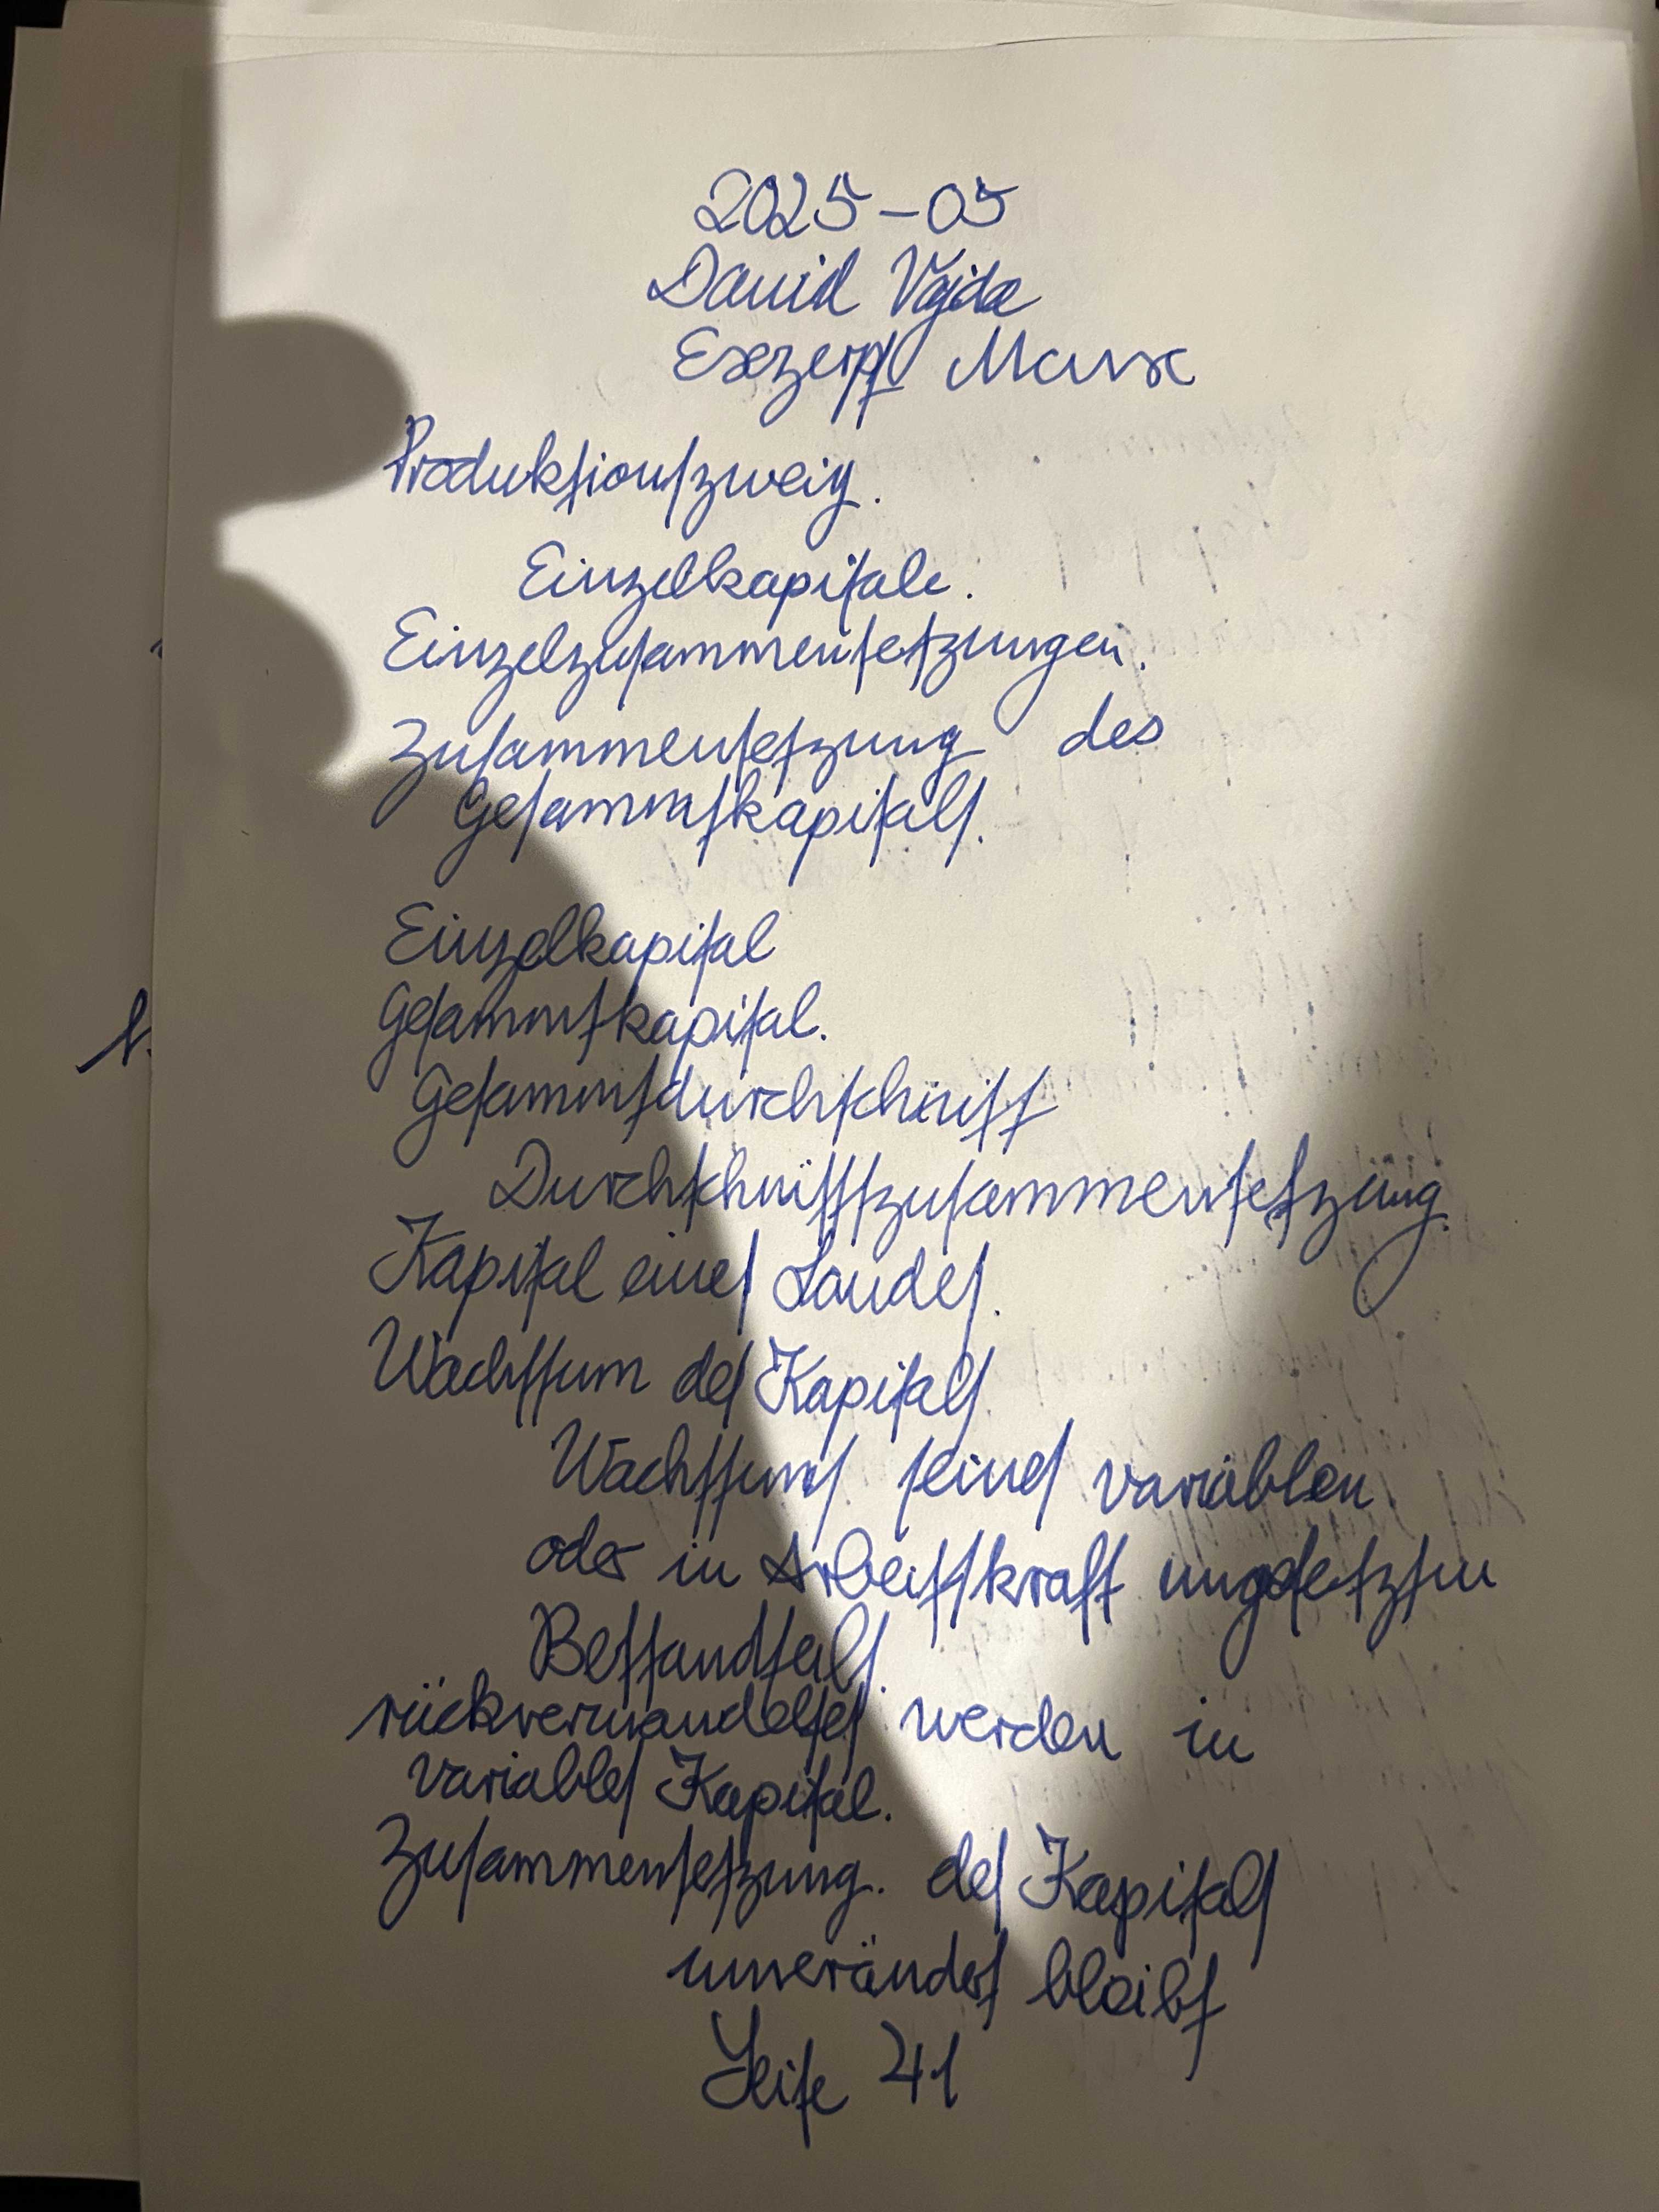 2025-05
David Vajda
Exzerpt Marx
Produktionszweig.
Einzelkapitale.
Einzelzusammensetzungen.
Zusammensetzung des
Gesammtkapitals.
Einzelkapital
Gesammtkapital.
Gesammtdurchschnitt
Durchschnittszusammensetzung.
Kapital eines Landes.
Wachstum des Kapitals
Wachstums seines variablen
oder in Arbeitskraft umgesetzten
Bestandteils.
rückverwandeltes werden in
variables Kapital.
Zusammensetzung. des Kapitals
unverändert bleibt
Seite 41